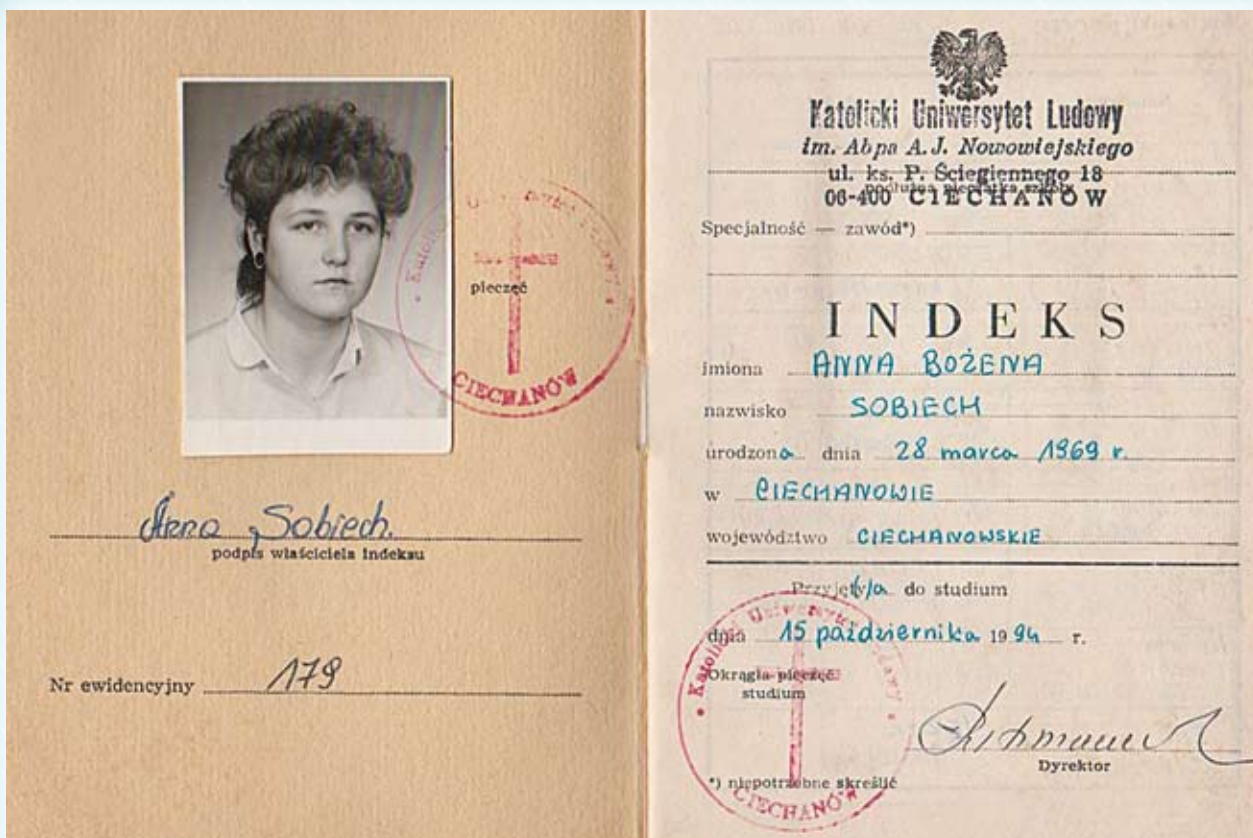 Katolicki Uniwersytet Ludowy
CIECHANÓW
pieczęć
Anna Sobiech.
podpis właściciela indeksu
Nr ewidencyjny 179
Katolicki Uniwersytet Ludowy
im. Abpa A. J. Nowowiejskiego
ul. ks. P. Ściegiennego 18
podłużna pieczątka szkoły
06-400 CIECHANÓW
Specjalność — zawód*)
INDEKS
imiona ANNA BOŻENA
nazwisko SOBIECH
urodzona dnia 28 marca 1969 r.
w CIECHANOWIE
województwo CIECHANOWSKIE
Przyjęty/a do studium
dnia 15 października 1994 r.
Katolicki Uniwersytet Ludowy
Okrągła pieczęć
studium
CIECHANÓW
Dyrektor
*) niepotrzebne skreślić